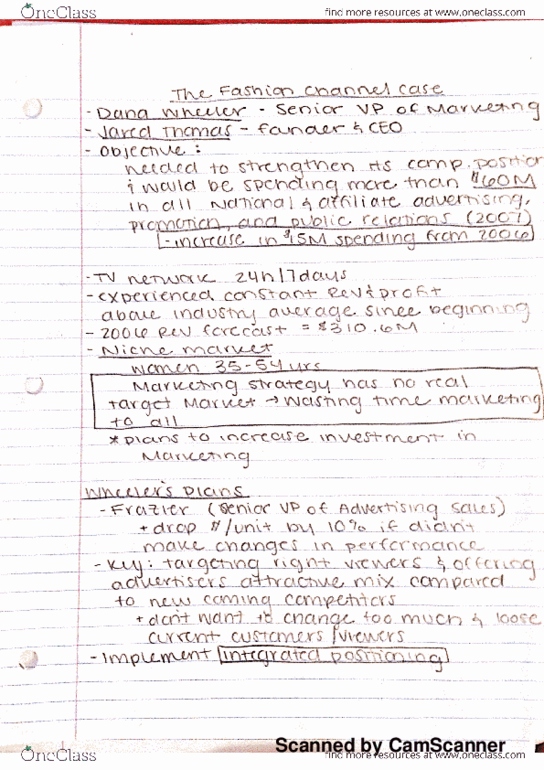 OneClass
find more resources at www.oneclass.com
The Fashion Channel case
- Dana Wheeler - Senior VP of Marketing
- Jared Thomas - Founder & CEO
- Objective:
needed to strengthen its comp. position
& would be spending more than $60M
in all National & affiliate advertising,
promotion, and public relations (2007)
- increase in $15M spending from 2006
- TV network 24h/7days
- experienced constant Rev & profit
above industry average since beginning
- 2006 Rev forecast = $310.6M
- Niche market
women 35-54 yrs
Marketing strategy has no real
target market → wasting time marketing
to all
* plans to increase investment in
Marketing
Wheeler's Plans
- Frazier (Senior VP of Advertising Sales)
+ drop $/unit by 10% if didn't
make changes in performance
- Key: targeting right viewers & offering
advertisers attractive mix compared
to new coming competitors
+ don't want to change too much & loose
current customers/viewers
- Implement integrated positioning
Scanned by CamScanner
OneClass
find more resources at www.oneclass.com